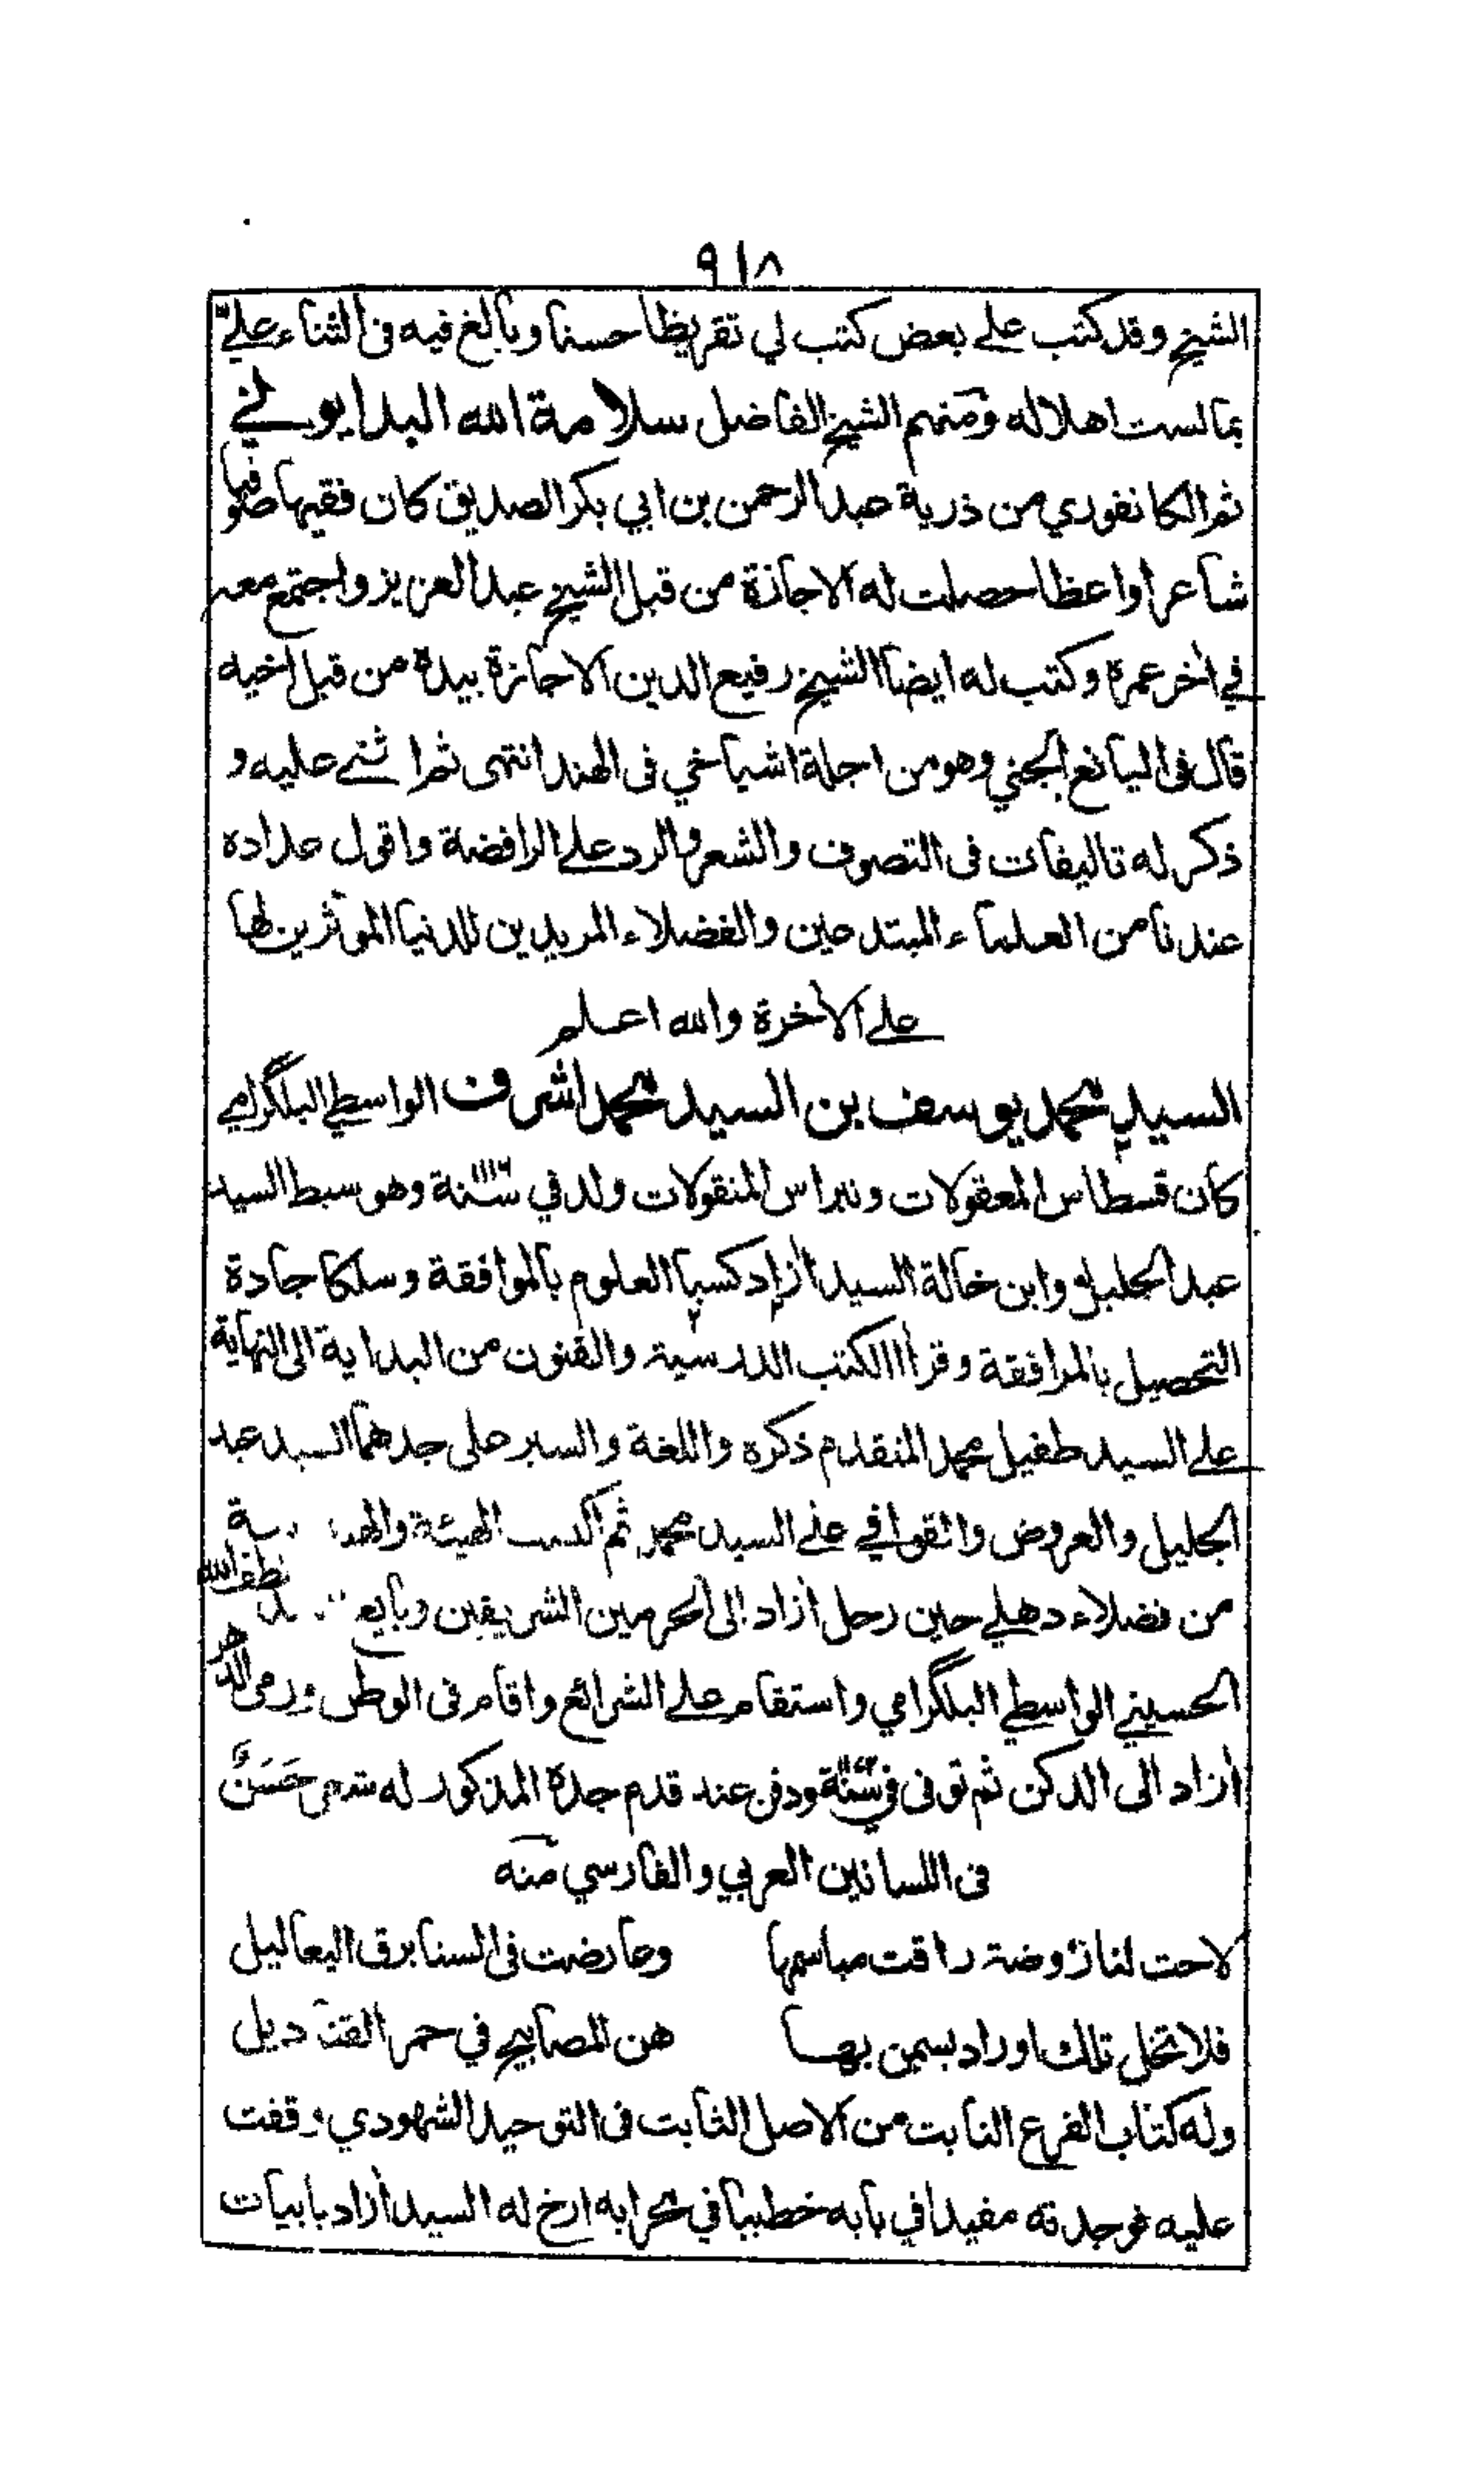 ٩١٨
الشيخ وقد كتب على بعض كتب لي تقريظا حسنا وبالغ فيه فى الثناء عليّ
بما لست اهلا له ومنهم الشيخ الفاضل سلامة الله البدايوني
ثم الكانفوري من ذرية عبد الرحمن بن ابي بكر الصديق كان فقيها صوفيا
شاعرا واعظا حصلت له الاجازة من قبل الشيخ عبد العزيز واجتمع معه
في اخر عمره وكتب له ايضا الشيخ رفيع الدين الاجازة بيده من قبل اخيه
قال فى اليانع الجني وهو من اجلة اشياخي فى الهند انتهى ثم اثنى عليه و
ذكر له تاليفات فى التصوف والشعر والرد على الرافضة واقول عداده
عندنا من العلماء المبتدعين والفضلاء المريدين للدنيا الموثرين لها
على الأخرة والله اعلم
السيد محمد يوسف بن السيد محمد اشرف الواسطي البلگرامي
كان قسطاس المعقولات ونبراس المنقولات ولد في سنة وهو سبط السيد
عبد الجليل وابن خالة السيد أزاد كسبا العلوم بالموافقة وسلكا جادة
التحصيل بالمرافقة وقرأا الكتب الدرسية والفنون من البداية الى النهاية
على السيد طفيل محمد المتقدم ذكره واللغة والسير على جدهما السيد عبد
الجليل والعروض والقوافي على السيد محمد ثم اكتسب الهيئة والهندسة
من فضلاء دهلي حين رحل أزاد الى الحرمين الشريفين وبايع لطف الله
الحسيني الواسطي البلگرامي واستقام على الشرائع واقام فى الوطن ورمى الدهر
أزاد الى الدكن ثم توفى في سنة ودفن عند قدم جده المذكور له شعر حَسَنٌ
فى اللسانين العربي والفارسي منه
لاحت لنا روضة راقت مباسمها وعارضت فى السنا برق اليعاليل
فلا تخل تلك اوراد بسمن بها هن المصابيح في حمر القناديل
وله كتاب الفرع النابت من الاصل الثابت فى التوحيد الشهودي وقفت
عليه فوجدته مفيدا في بابه خطيبا في محرابه ارخ له السيد أزاد بابيات